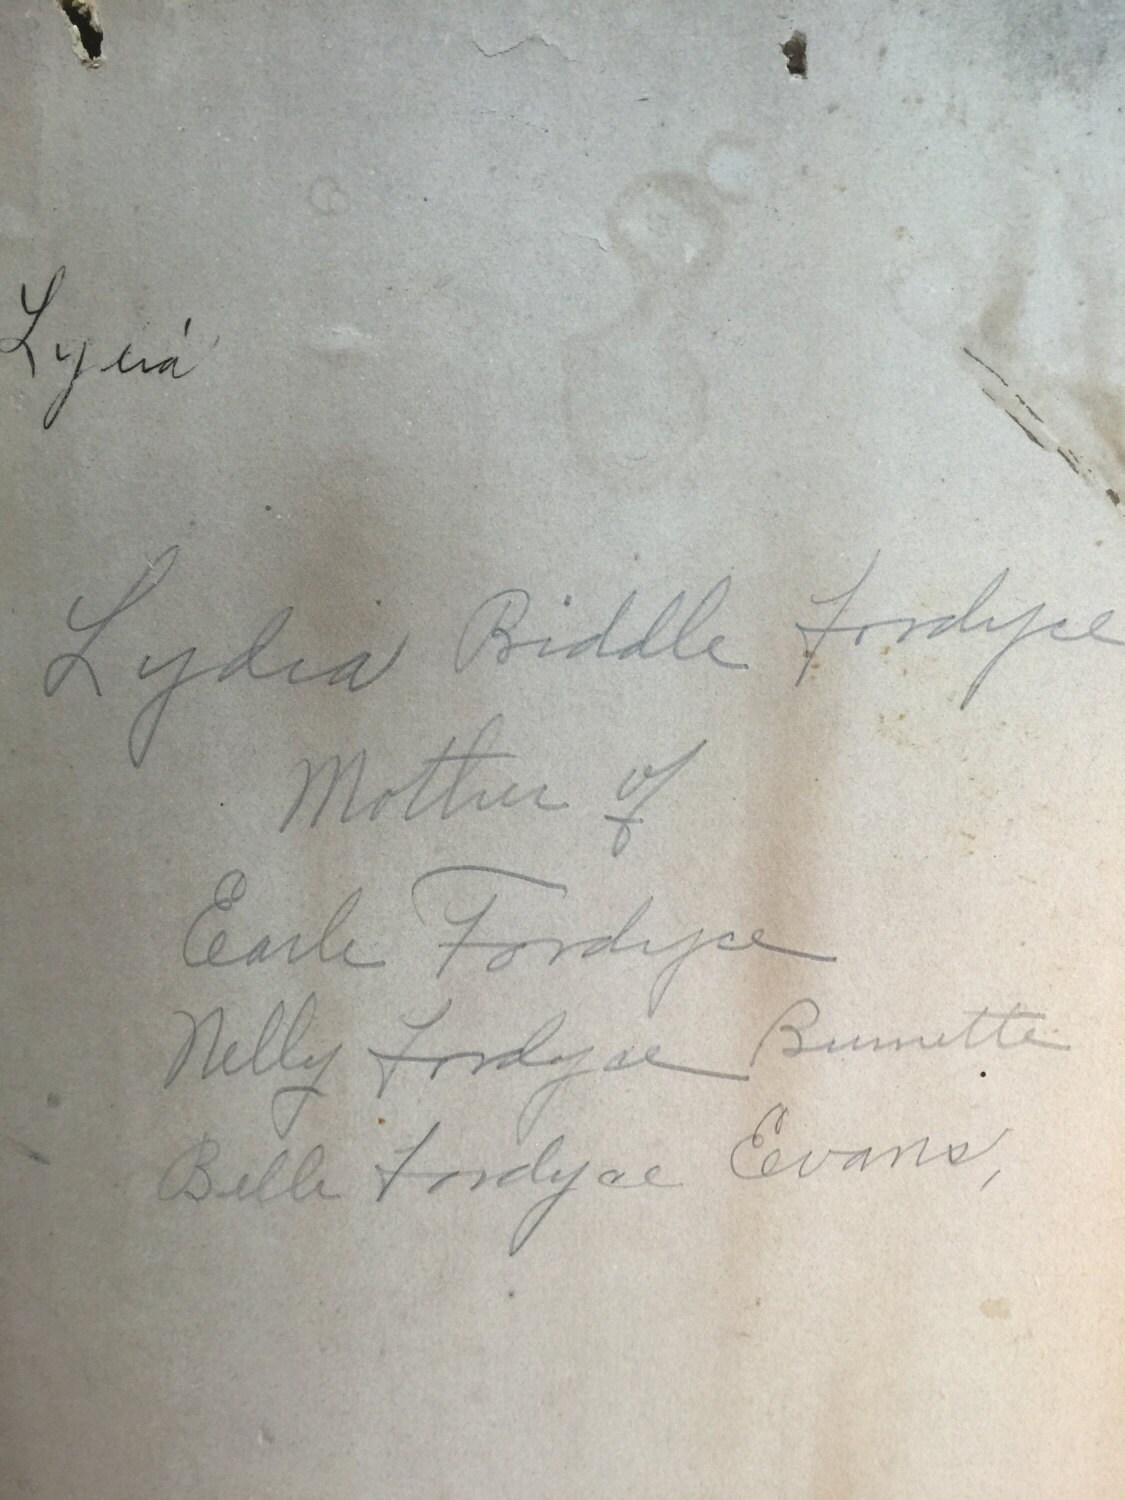 Lydia
Lydia Biddle Fordyce
Mother of
Earle Fordyce
Nelly Fordyce Burnette
Belle Fordyce Evans,